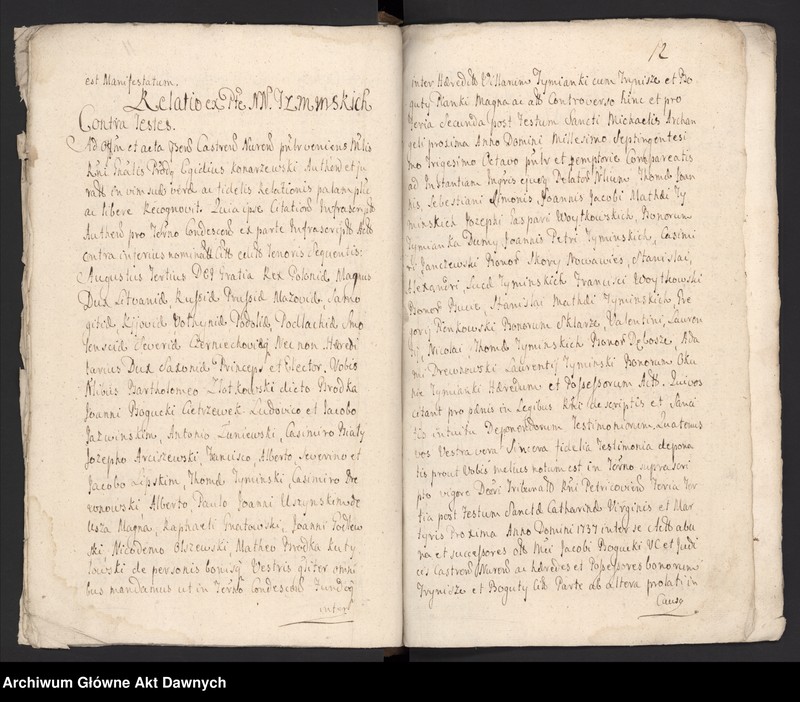 est Manifestatum.
Relatio ex Pte NN. Tymińskich
Contra Testes.
Ad Offm et acta Castren Nuren veniens
Rni Egidius Konarzewski Authen et ju
rat in vim suæ veræ ac fidelis Relationis palam
ac libere Recognovit. Quia ipse Citationem Infrascript
Authen pro Termo Condescen ex parte Infrascript Act
contra inferius nominat Tenoris Sequentis:
Augustus Tertius DEI Gratia Rex Poloniæ Magnus
Dux Litvaniæ Russiæ Prussiæ Mazoviæ Samo
gitiæ Kijoviæ Volhyniæ Podoliæ, Podlachiæ Smo
lensciæ Severiæ Czerniechoviæq Nec non Hæredi
tarius Dux Saxoniæ Princeps et Elector. Vobis
Nlibus Bartholomeo Złotkowski dicto Brodka
Joanni Bogucki Cietrzewek Ludovico et Jacobo
Jaźwinskim, Antonio Zuniewski, Casimiro Biały
Jozepho Arciszewski, Francisco, Alberto Severino et
Jacobo Lępskim, Thomæ Tyminski, Casimiro Brze
Alberto, Paulo Joanni Uszynskim de
Usza Magna, Raphaeli Gnatowski, Joanni Godlew
ski Nicodemo Olszewski, Matheo Brodka Kuty
łowski de personis bonisq Vestris gliter omni
bus mandamus ut in Termo Condescen Fundoq
inter
12
inter Hæredit Villarum Tymianki cum Trynisze et Bo
guty Pianki Magna ac Controverso hinc et pro
Feria Secunda post Festum Sancti Michaelis Archan
geli proxima Anno Domini Millesimo Septingentesi
mo Trigesimo Octavo et Compareatis
ad Instantiam Delator Nlium Thomæ Joan
nis, Sebastiani Simonis Joannis Jacobi Mathæi Ty
minskich Jozephi Gaspari Woytkowskich, Bonorum
Tymianka Dumy Joannis Petri Tyminskich, Casimi
ri Janczewski Bonor Skory Nowawies, Stanislai,
Alexandri, Lucæ Tyminskich Francisci Woytkowski
Bonor Bucie, Stanislai Mathæi Tyminskich, Gre
gorij Pienkowski Bonorum Sklarze, Valentini, Lauren
tij, Nicolai, Thomæ Tyminskich Bonor Dębosze, Ada
mi Drewnowski Laurentij Tyminski Bonorum Oku
nie Tymianki Hæredum et Possessorum Act. Qui vos
citant pro pænis in Legibus Rni descriptis et Sanci
tis intuitu Deponendorum Testimoniorum, Quatenus
vos Vestra vera Sincera fidelia Testimonia depona
tis prout Vobis melius notum est in Termo suprascri
pto vigore Decri Tribunal Rni Petricovien Feria Ter
tia post Festum Sanctæ Catharinæ Virginis et Mar
tyris Proxima Anno Domini 1737 inter se
et successores Mei Jacobi Bogucki VC et Judi
cis Castren Nuren ac hæredes et Possessores bonorum
Trynisze et Boguty Parte ab altera prolati in
Causa
Archiwum Główne Akt Dawnych